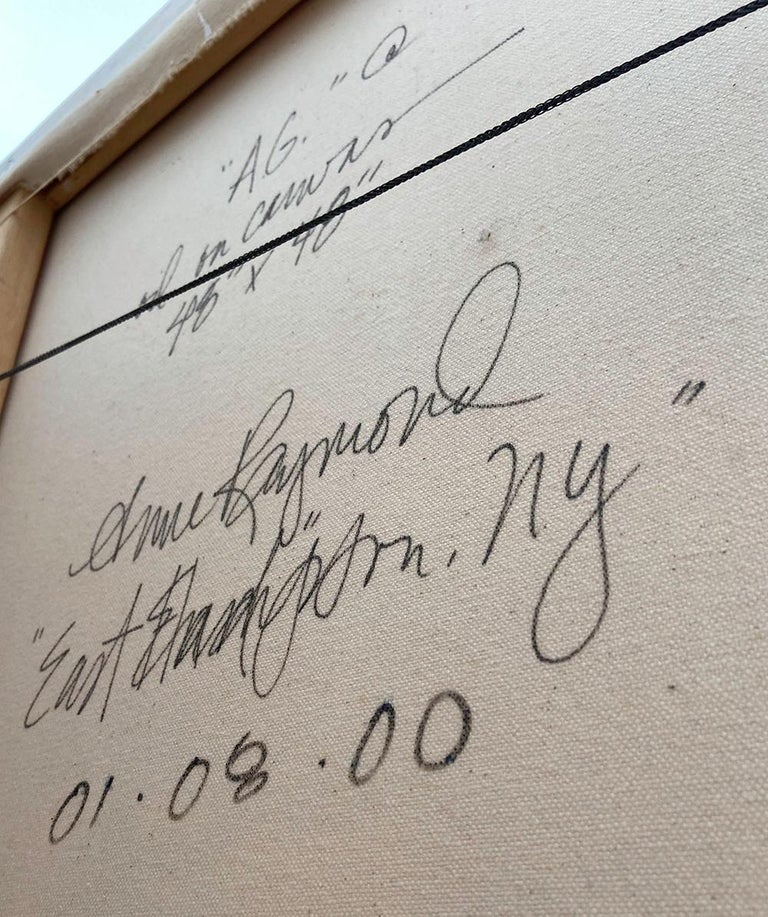 "A.G." ©
oil on canvas
48" x 40"
Anne Raymond
"East Hampton, NY"
01.08.00